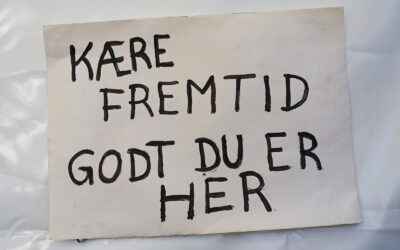 KÆRE
FREMTID
GODT DU ER
HER